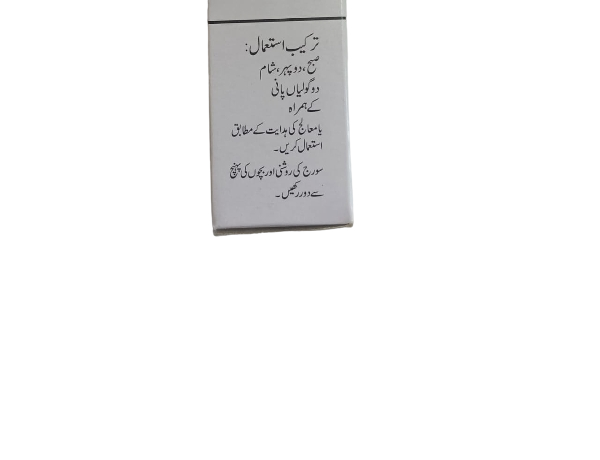 ترکیب استعمال:
صبح، دوپہر، شام
دو گولیاں پانی
کے ہمراہ
یا معالج کی ہدایت کے مطابق
استعمال کریں۔
سورج کی روشنی اور بچوں کی پہنچ
سے دور رکھیں۔